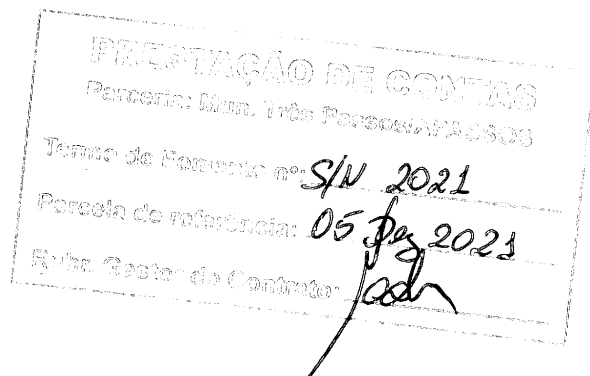 PRESTAÇÃO DE CONTAS
Parceria: Mun. Três Passos/APASSOS
Termo de Fomento nº: S/N 2021
Parcela de referência: 05 Dez 2021
Rubr. Gestor do Contrato: